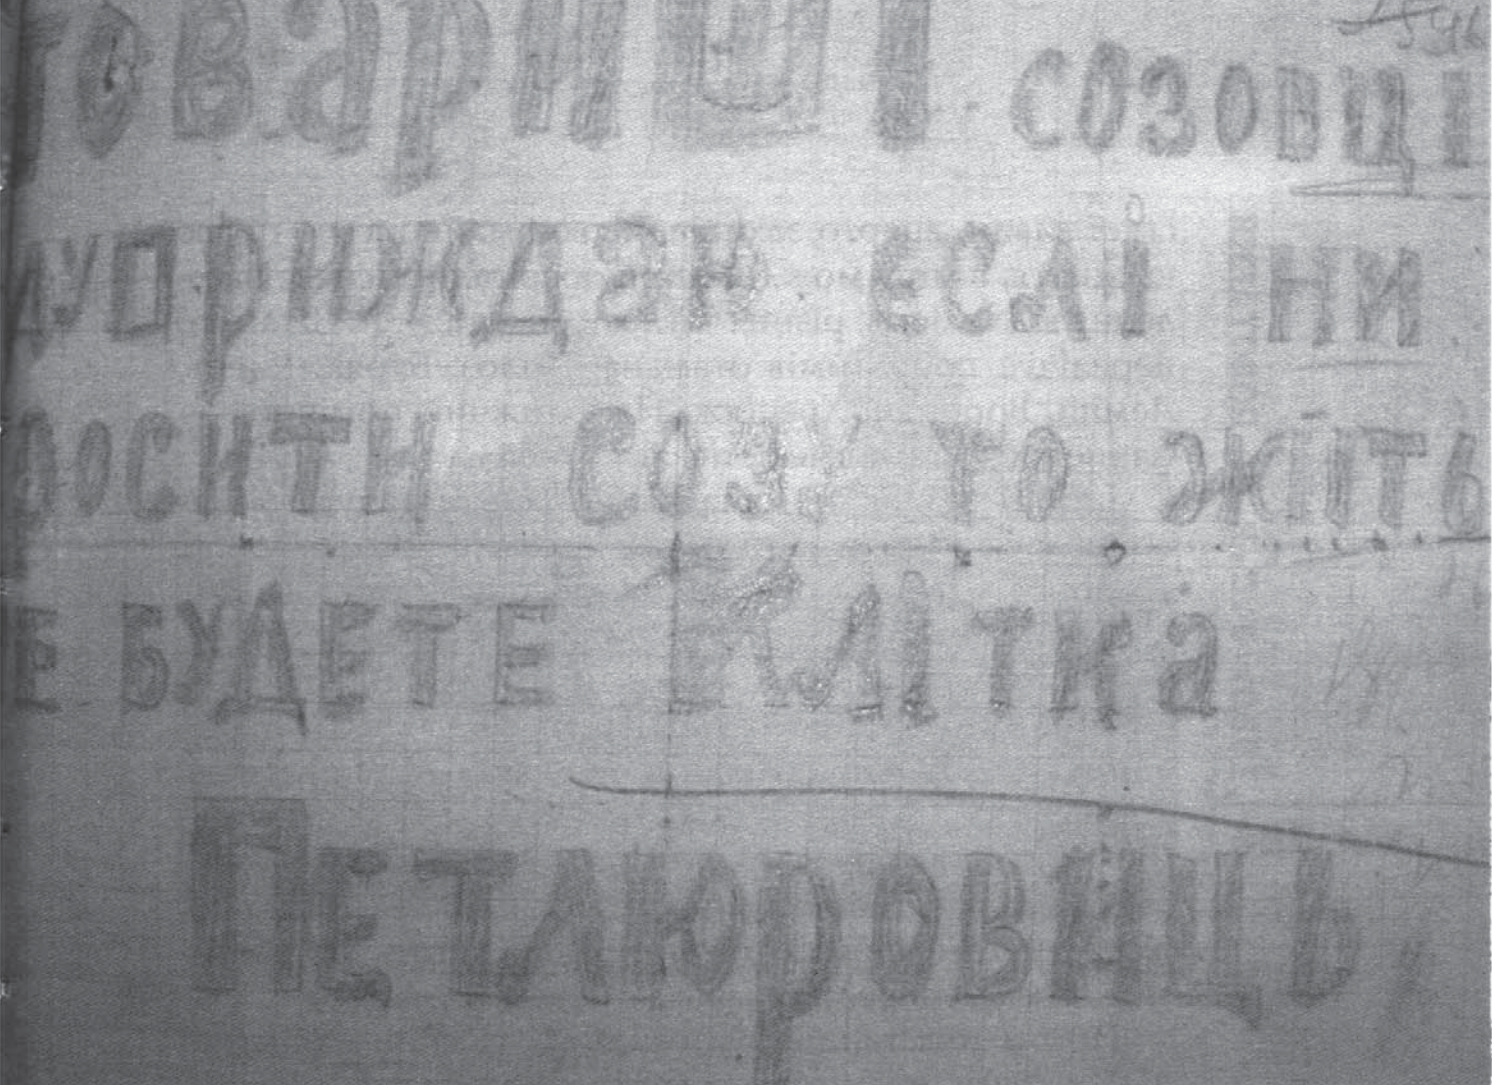 Товариші созовці
дуприждаю єслі ни
роситн Созу то жіть
Е БУДЕТЕ Клітка
ПЕТЛЮРОВИЦЬ